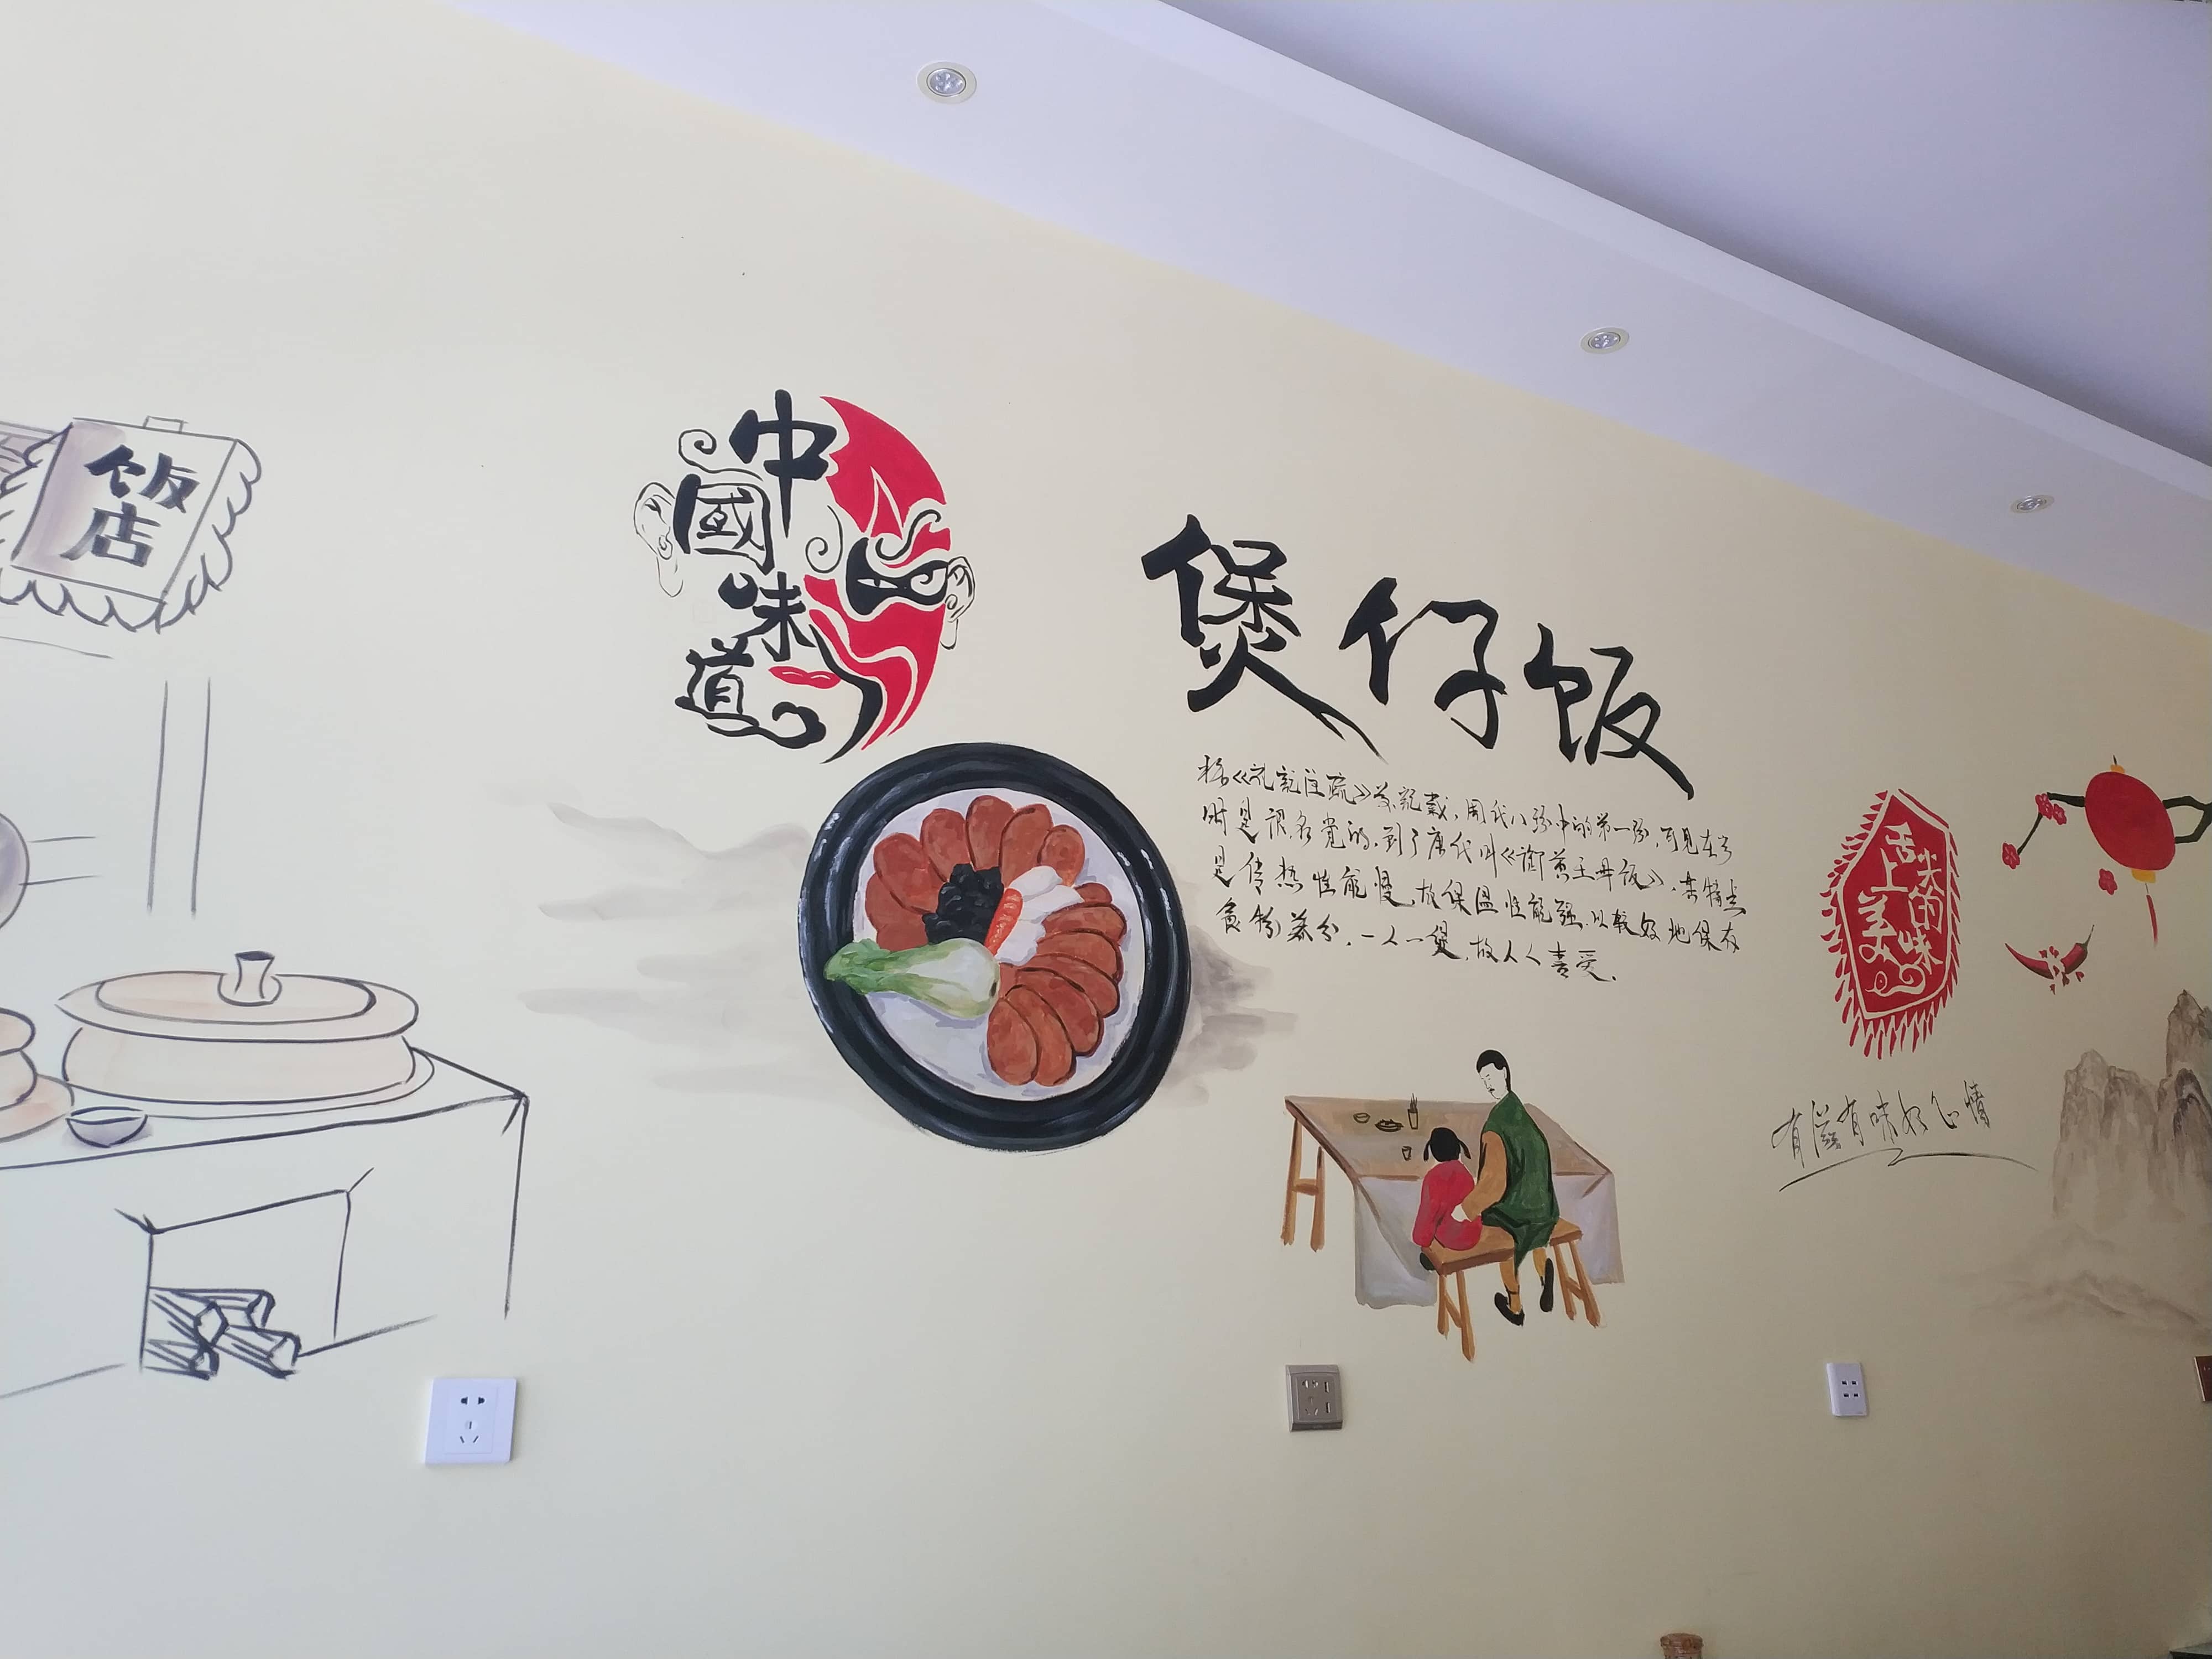 饭
店
中
國
味
道
煲仔饭
据《礼记注疏》所记载，周代八珍中的第一珍，可见在当
时是很名贵的，到了唐代叫《御黄王母饭》，
是传热性能慢，故保温性能强，以较好地保存
食物养分，一人一煲，故人人喜爱。
舌尖
上的
美味
有滋有味好心情